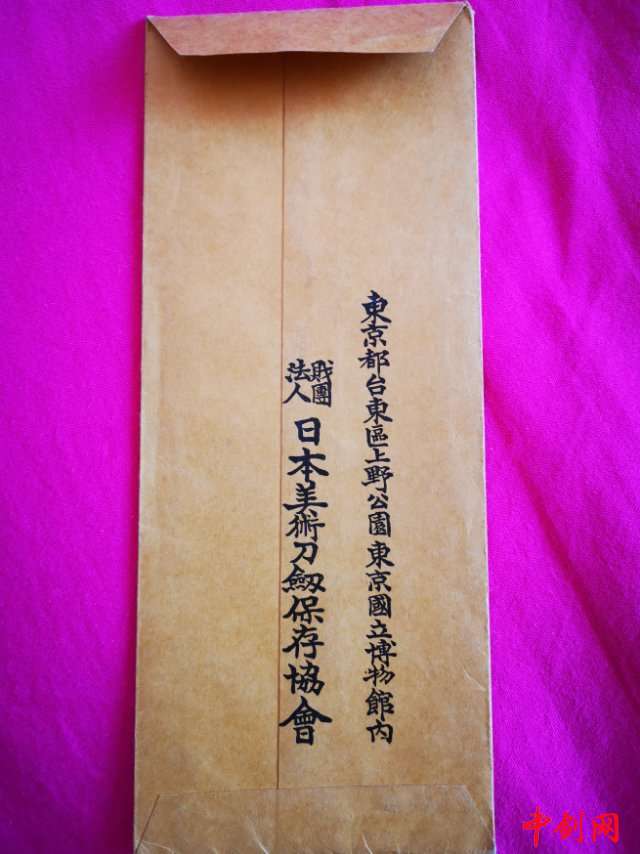 東京都台東區上野公園東京國立博物館内
財團法人 日本美術刀劔保存協會
中剑网